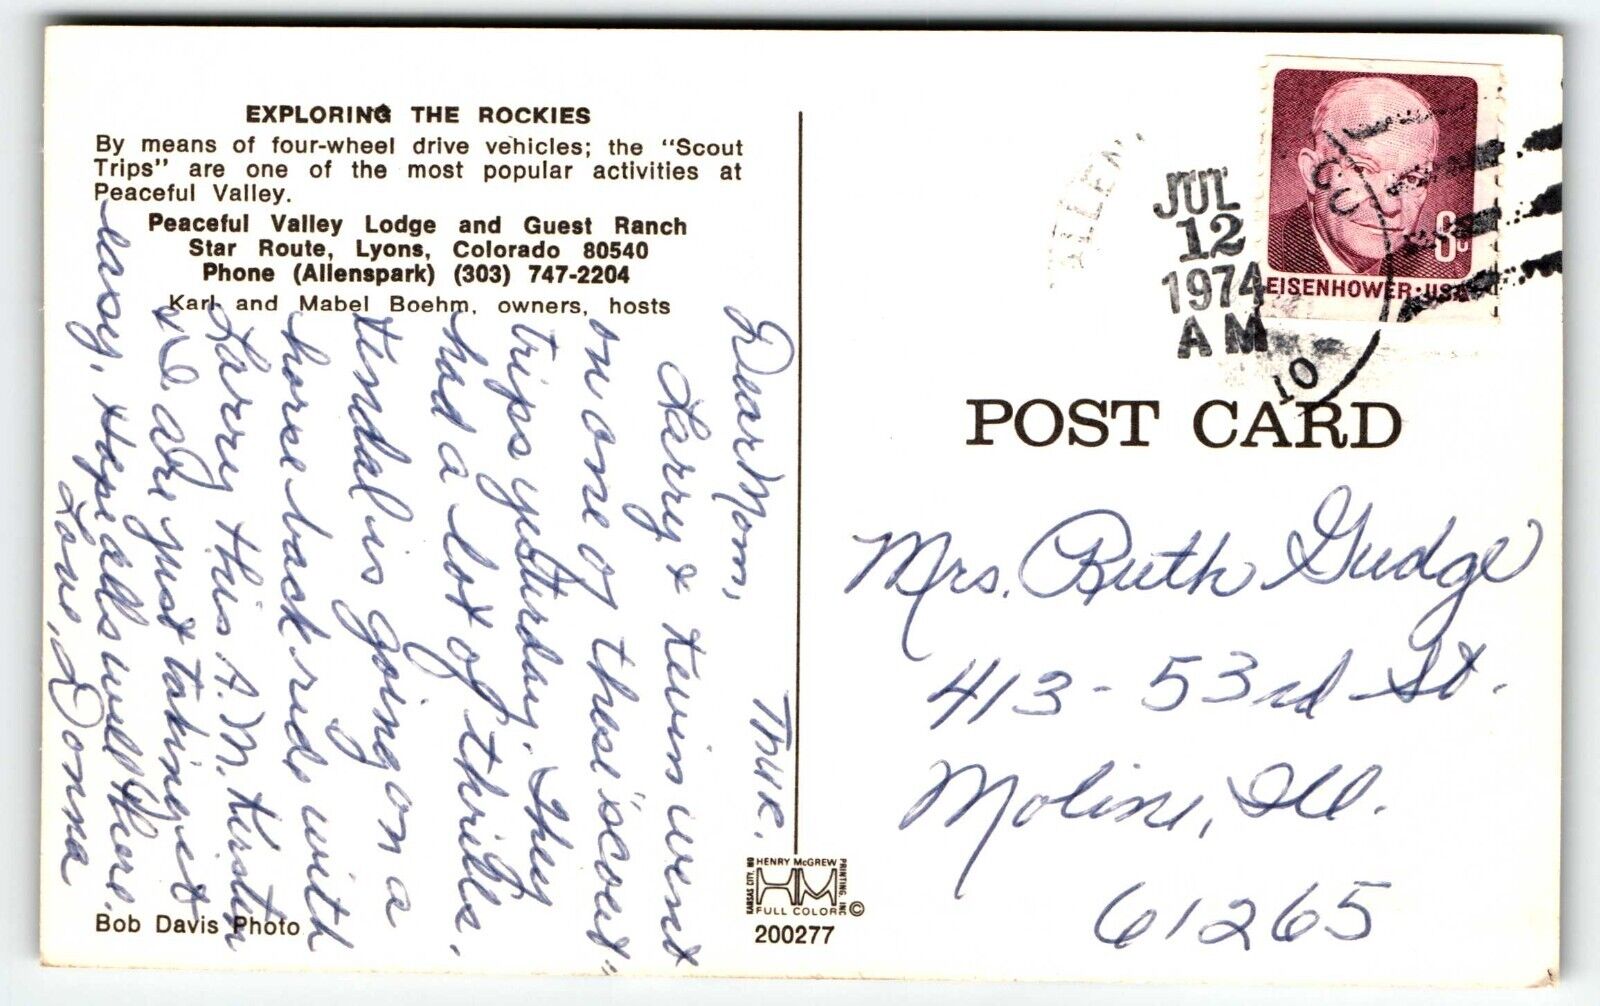 EXPLORING THE ROCKIES
By means of four-wheel drive vehicles; the "Scout
Trips" are one of the most popular activities at
Peaceful Valley.
Peaceful Valley Lodge and Guest Ranch
Star Route, Lyons, Colorado 80540
Phone (Allenspark) (303) 747-2204
Karl and Mabel Boehm, owners, hosts
Thur.
Dear Mom,
Larry & Kevin went
on one of these "scout"
trips yesturday. They
had a lot of thrills.
Kendal is going on a
horse back ride with
Larry this A.M. Kirsten
& I are just taking it
easy. Hope all's well there.
Love, Donna
Bob Davis Photo
KANSAS CITY, MO
HENRY McGREW
PRINTING, INC
HM
FULL COLOR ©
200277
ALLEN
JUL
12
1974
AM
10
8c
EISENHOWER·USA
POST CARD
Mrs. Ruth Gudge
413-53rd St.
Moline, Ill.
61265